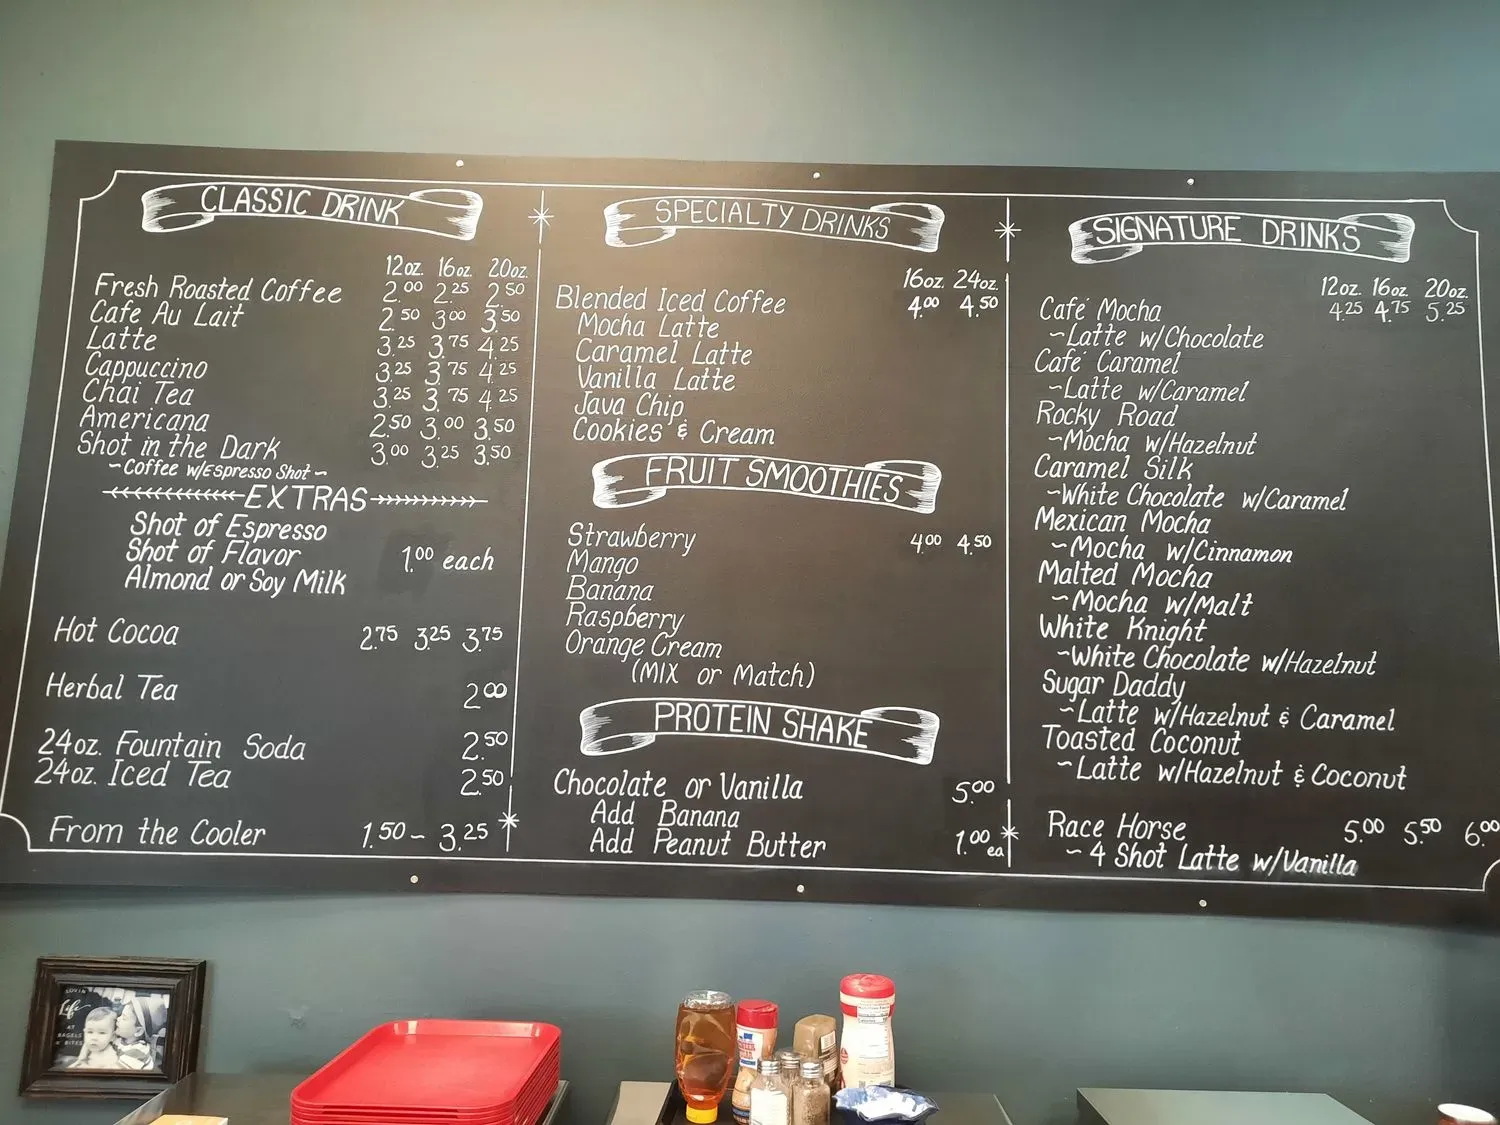 CLASSIC DRINK
12oz. 16oz. 20oz.
Fresh Roasted Coffee 2.00 2.25 2.50
Cafe Au Lait 2.50 3.00 3.50
Latte 3.25 3.75 4.25
Cappuccino 3.25 3.75 4.25
Chai Tea 3.25 3.75 4.25
Americana 2.50 3.00 3.50
Shot in the Dark 3.00 3.25 3.50
~Coffee w/Espresso Shot~
EXTRAS
Shot of Espresso
Shot of Flavor 1.00 each
Almond or Soy Milk
Hot Cocoa 2.75 3.25 3.75
Herbal Tea 2.00
24oz. Fountain Soda 2.50
24oz. Iced Tea 2.50
From the Cooler 1.50 ~ 3.25
SPECIALTY DRINKS
16oz. 24oz.
Blended Iced Coffee 4.00 4.50
Mocha Latte
Caramel Latte
Vanilla Latte
Java Chip
Cookies & Cream
FRUIT SMOOTHIES
Strawberry 4.00 4.50
Mango
Banana
Raspberry
Orange Cream
(MIX or Match)
PROTEIN SHAKE
Chocolate or Vanilla 5.00
Add Banana
Add Peanut Butter 1.00 ea
SIGNATURE DRINKS
12oz. 16oz. 20oz.
Café Mocha 4.25 4.75 5.25
~Latte w/Chocolate
Café Caramel
~Latte w/Caramel
Rocky Road
~Mocha w/Hazelnut
Caramel Silk
~White Chocolate w/Caramel
Mexican Mocha
~Mocha w/Cinnamon
Malted Mocha
~Mocha w/Malt
White Knight
~White Chocolate w/Hazelnut
Sugar Daddy
~Latte w/Hazelnut & Caramel
Toasted Coconut
~Latte w/Hazelnut & Coconut
Race Horse 5.00 5.50 6.00
~4 Shot Latte w/Vanilla
LOVIN'
Life
AT
BAGELS
N' BITES